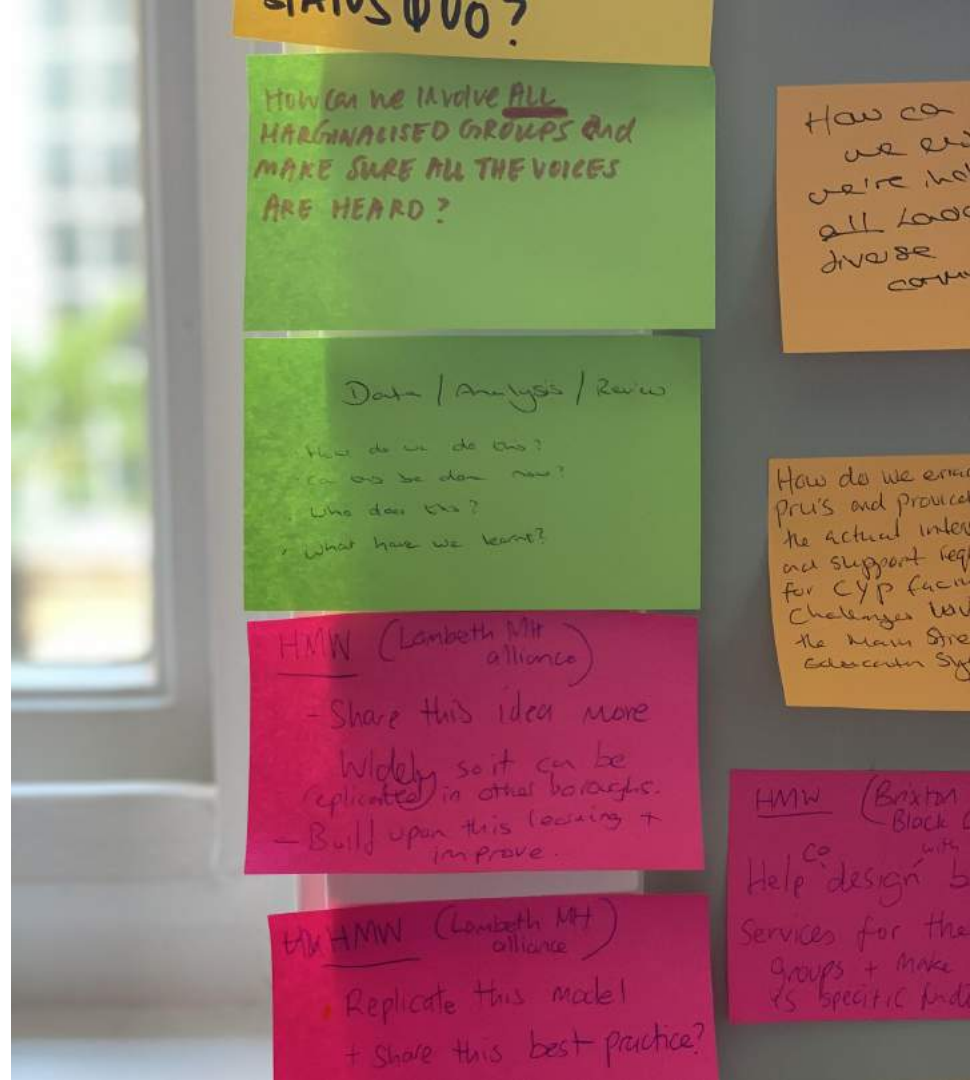 STATUS QUO?
How can we involve ALL
MARGINALISED GROUPS and
MAKE SURE ALL THE VOICES
ARE HEARD?
Data / Analysis / Review
- How do we do this?
- Can this be done now?
- Who does this?
- What have we learnt?
HMW (Lambeth MH
alliance)
- Share this idea more
Widely so it can be
replicated in other boroughs.
- Build upon this learning +
improve.
HMW (Lambeth MH
alliance)
Replicate this model
+ Share this best practice?
How ca
we
we're
all
diverse
How do we
PRU's and
the actual
and support
for CYP
Challenges
the Main
HMW (Brixton
Black
co with
Help design
Services for the
groups + make
is specific